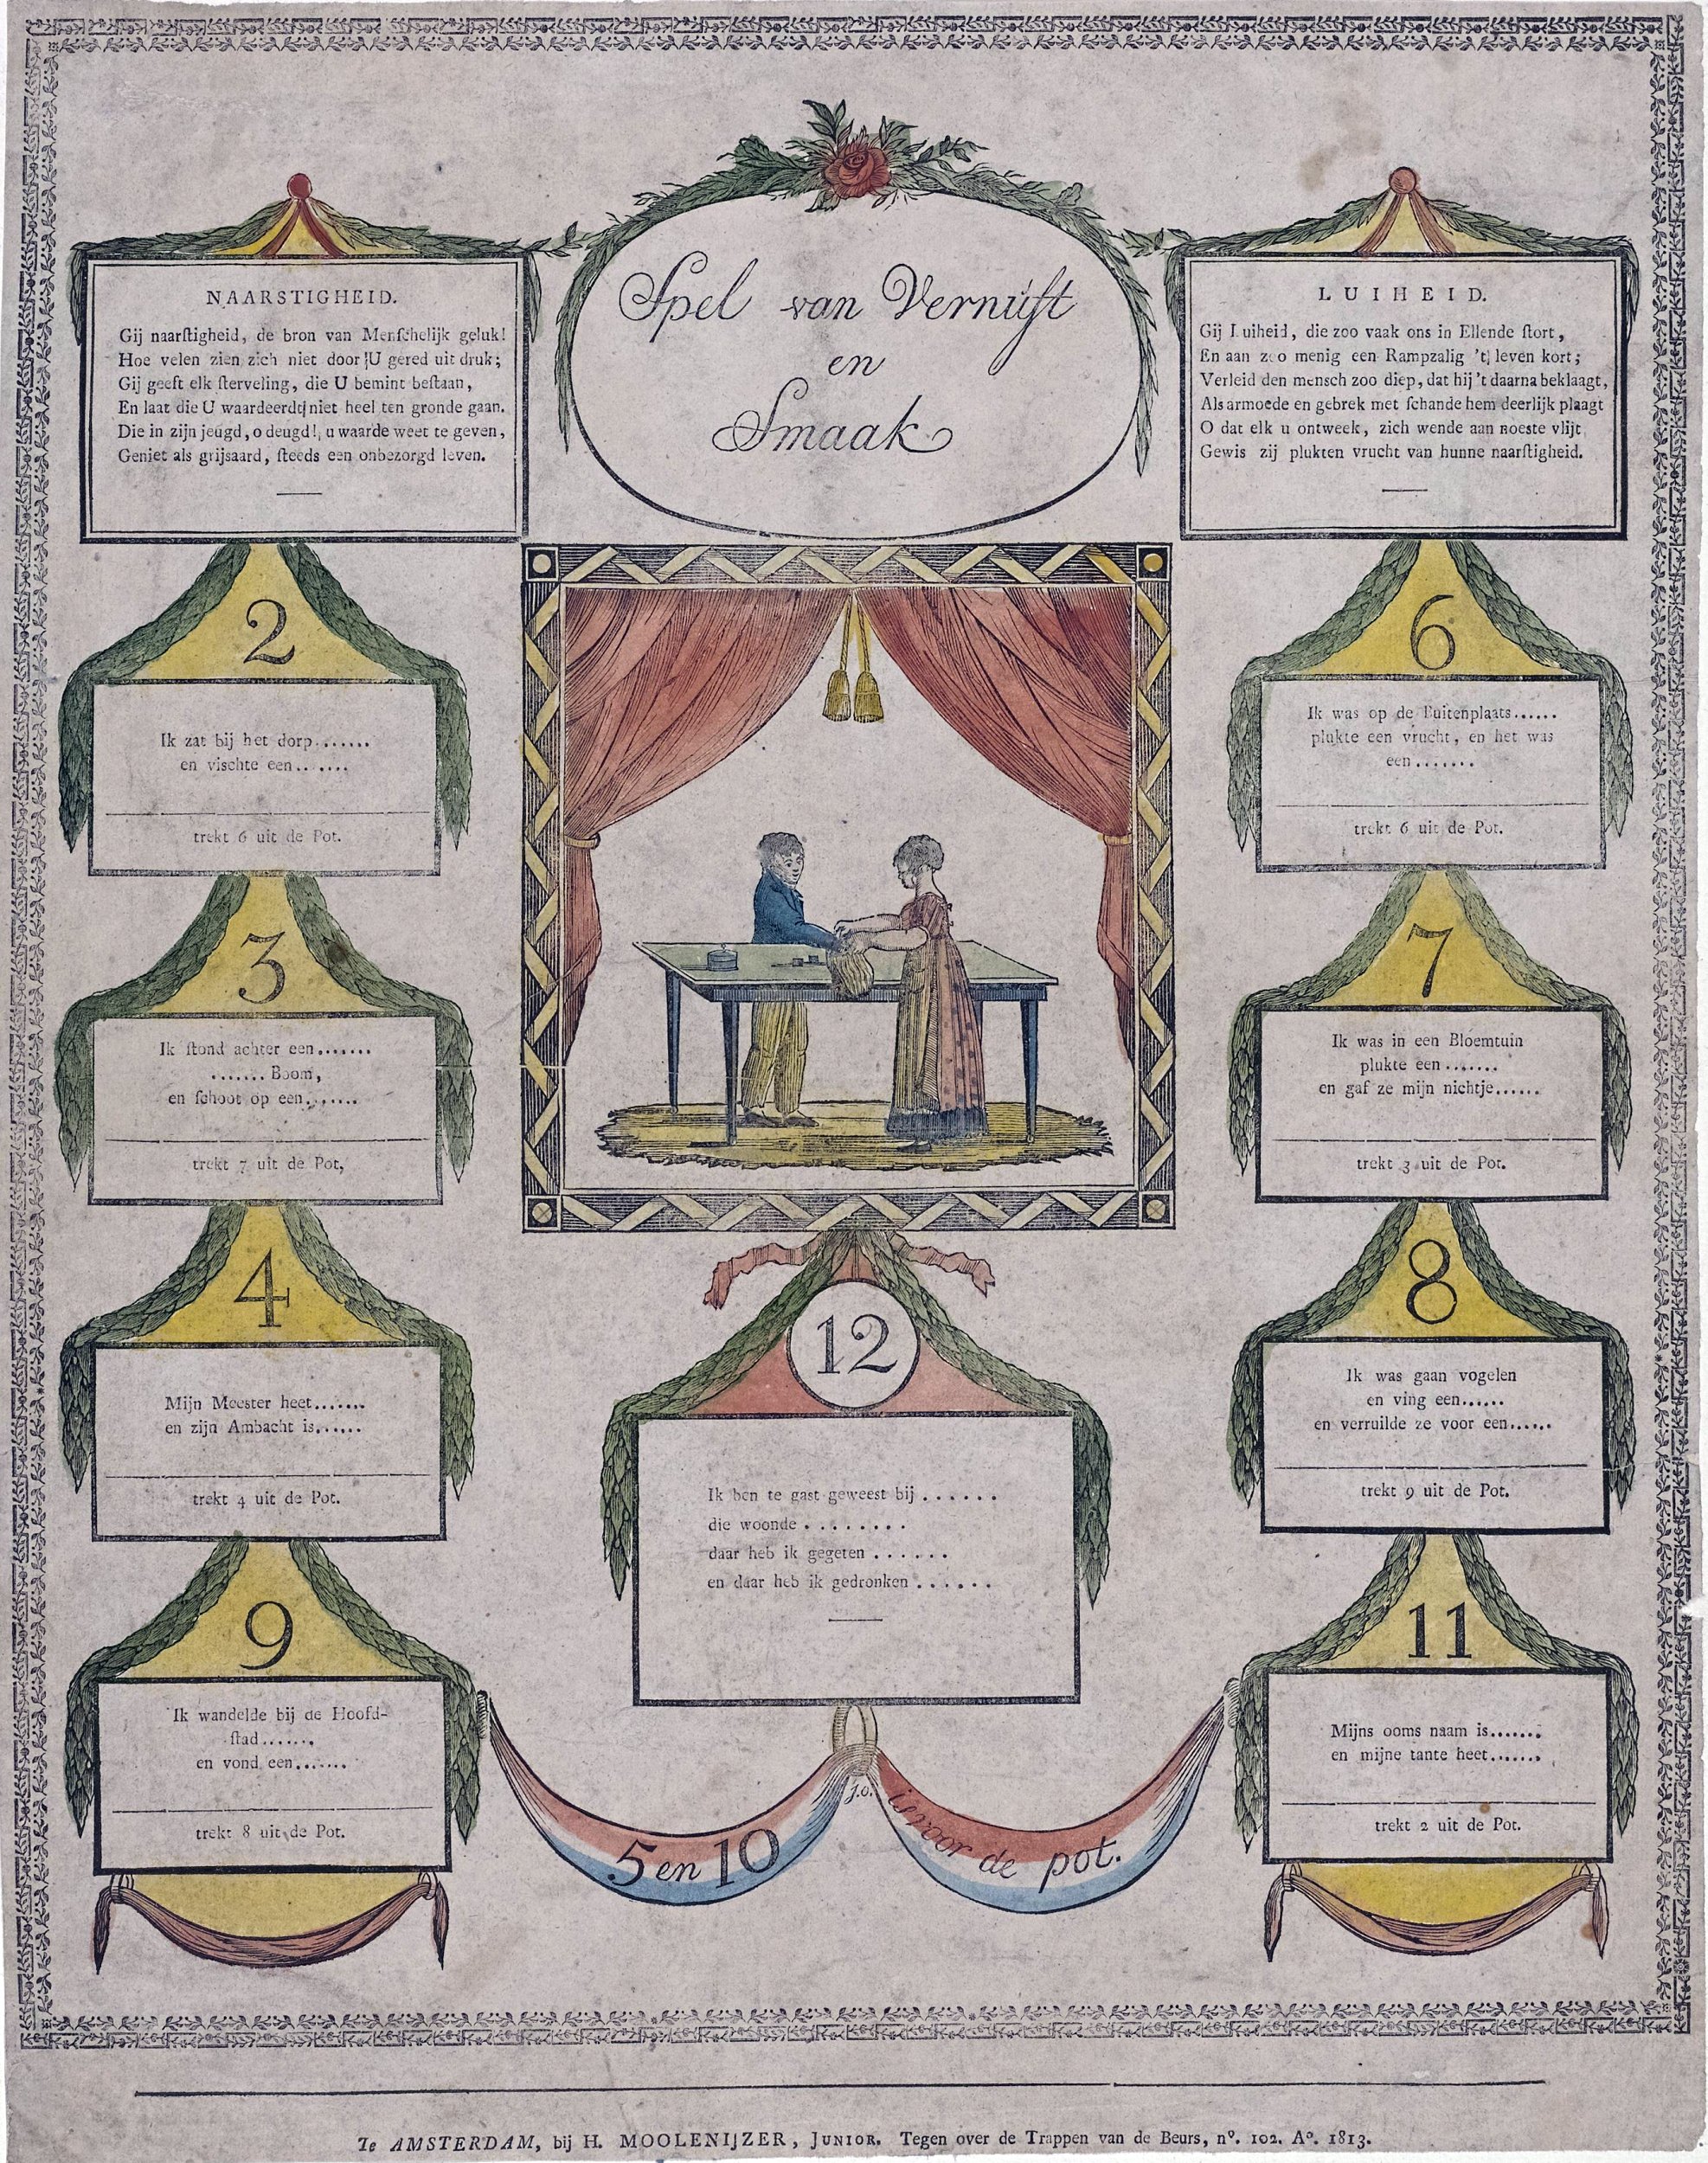 Spel van Vernuft
en
Smaak
NAARSTIGHEID.
Gij naarſtigheid, de bron van Menſchelijk geluk!
Hoe velen zien zich niet door U gered uit druk;
Gij geeft elk ſterveling, die U bemint beſtaan,
En laat die U waardeerdt niet heel ten gronde gaan.
Die in zijn jeugd, o deugd!, u waarde weet te geven,
Geniet als grijsaard, ſteeds een onbezorgd leven.
LUIHEID.
Gij Luiheid, die zoo vaak ons in Ellende ſtort,
En aan zoo menig een Rampzalig 't leven kort;
Verleid den mensch zoo diep, dat hij 't daarna beklaagt,
Als armoede en gebrek met ſchande hem deerlijk plaagt
O dat elk u ontweek, zich wende aan noeste vlijt
Gewis zij plukten vrucht van hunne naarſtigheid.
2
Ik zat bij het dorp.......
en vischte een.......
trekt 6 uit de Pot.
3
Ik ſtond achter een.......
....... Boom,
en ſchoot op een.......
trekt 7 uit de Pot,
4
Mijn Meester heet.......
en zijn Ambacht is......
trekt 4 uit de Pot.
9
Ik wandelde bij de Hoofd-
ſtad.......
en vond een.......
trekt 8 uit de Pot.
6
Ik was op de Buitenplaats......
plukte een vrucht, en het was
een.......
trekt 6 uit de Pot.
7
Ik was in een Bloemtuin
plukte een.......
en gaf ze mijn nichtje......
trekt 3 uit de Pot.
8
Ik was gaan vogelen
en ving een......
en verruilde ze voor een......
trekt 9 uit de Pot.
11
Mijns ooms naam is.......
en mijne tante heet.......
trekt 2 uit de Pot.
12
Ik ben te gast geweest bij ......
die woonde ........
daar heb ik gegeten ......
en daar heb ik gedronken ......
5 en 10
J.O.
is voor de pot.
Te AMSTERDAM, bij H. MOOLENIJZER, JUNIOR. Tegen over de Trappen van de Beurs, nº. 102. Aº. 1813.